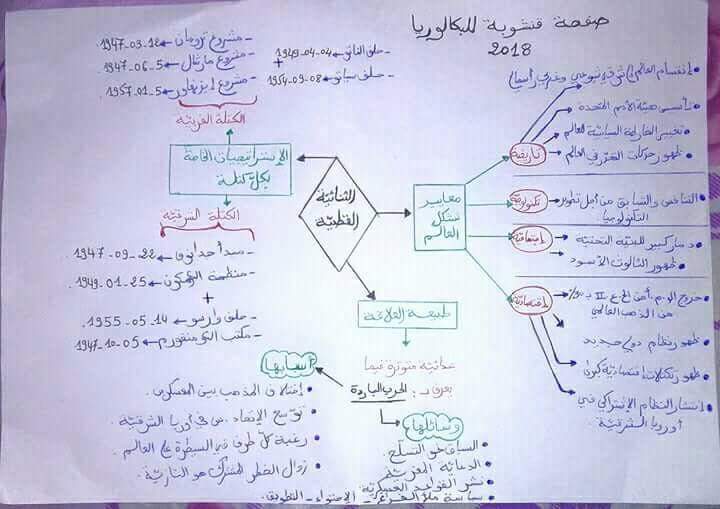 صفحة منشوية للبكالوريا
2018
الثنائية
القطبية
معايير
تشكل
العالم
تاريخية
إنقسام العالم إلى شرقي شيوعي وغربي رأسمالي
تأسيس هيئة الأمم المتحدة
تغيير الخارطة السياسية للعالم
ظهور حركات التحرر في العالم
تكنولوجية
التنافس والتسابق من أجل تطوير
التكنولوجيا
إجتماعية
دمار كبير للبنية التحتية
ظهور الثالوث الأسود
إقتصادية
خروج الو.م.أ من الح ع II ب
من الذهب العالمي
ظهور نظام دولي جديد
ظهور تكتلات إقتصادية كبرى
إنتشار النظام الإشتراكي في
أوربا الشرقية
الإستراتيجيات الخاصة
بكل كتلة
الكتلة الغربية
- مشروع ترومان ← 12-03-1947.
- مشروع مارشال ← 5-06-1947.
- مشروع إيزنهاور ← 5-01-1957.
- حلف الناتو ← 04-04-1949
+
- حلف سياتو ← 08-09-1954
الكتلة الشرقية
- مبدأ جدانوف ← 22-09-1947
- منظمة الكوميكون ← 25-01-1949
+
- حلف وارسو ← 14-05-1955
- مكتب الكومنفورم ← 05-10-1947
طبيعة العلاقة
عدائية متوترة فيما
يعرف بـ: الحرب الباردة
أسبابها
إختلاف المذهب بين المعسكرين
توسع الإتحاد .س في أوربا الشرقية
رغبة كل طرف في السيطرة على العالم
زوال الخطر المشترك هو النازية
وسائلها
السباق نحو التسلح
الدعاية المغرضة
نشر القواعد العسكرية
سياسة ملأ الفراغ - الإحتواء - التطويق